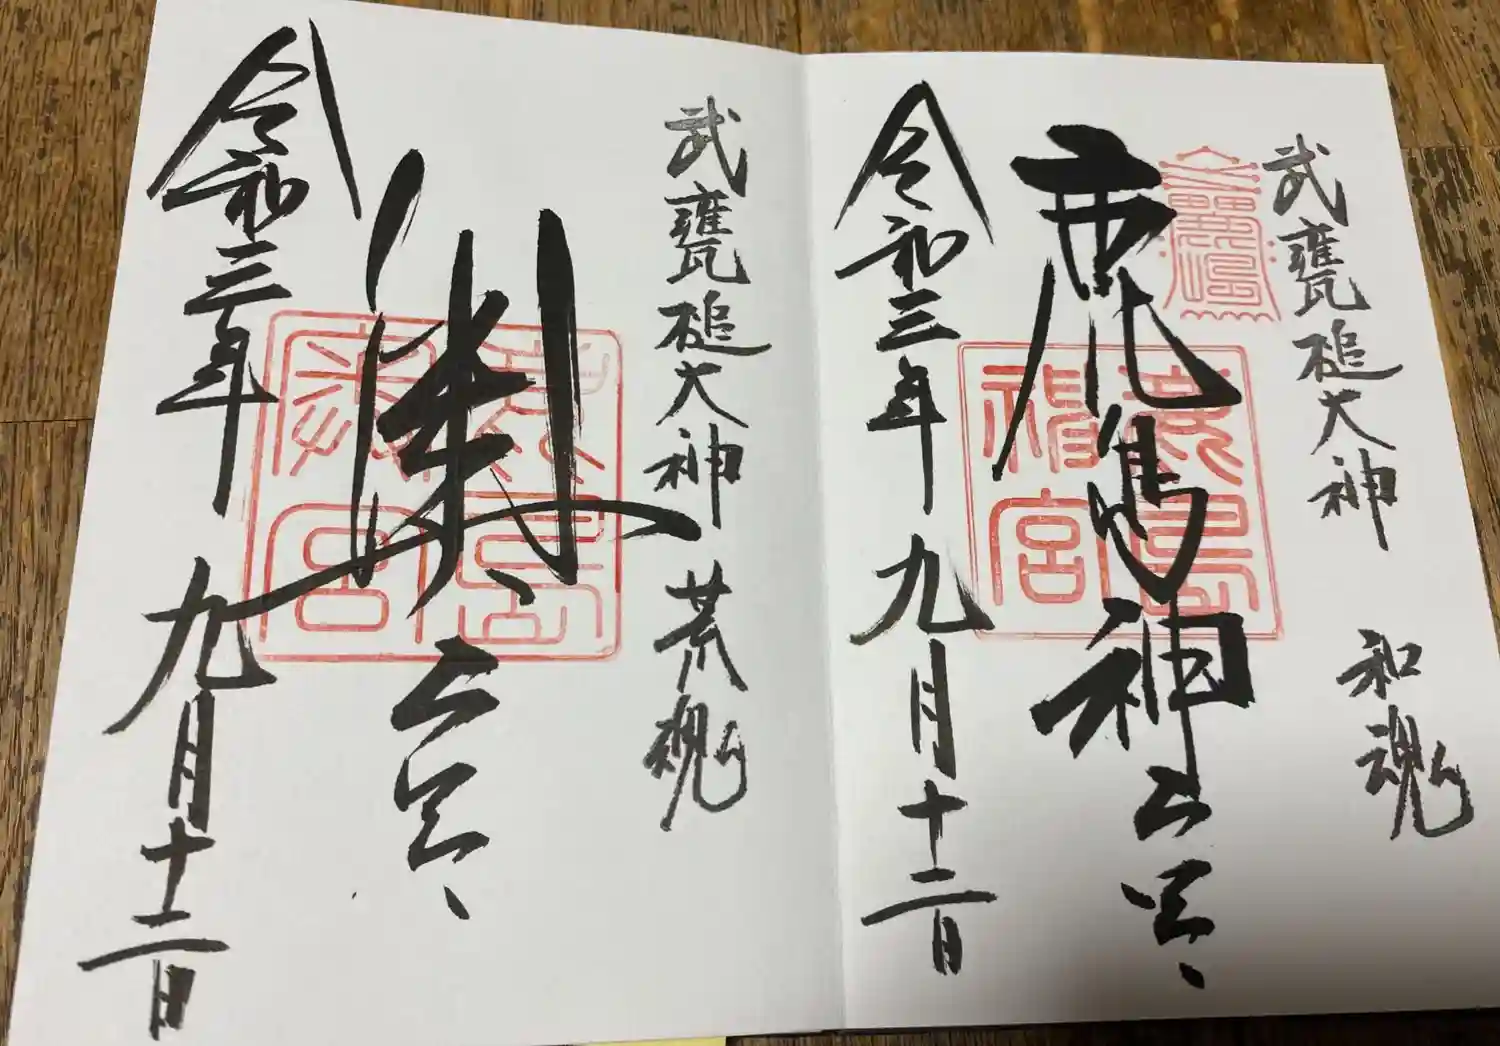 武甕槌大神 和魂
鹿島神宮
鹿島
神宮
令和三年九月十二日
武甕槌大神 荒魂
奥宮
鹿島
奥宮
令和三年九月十二日